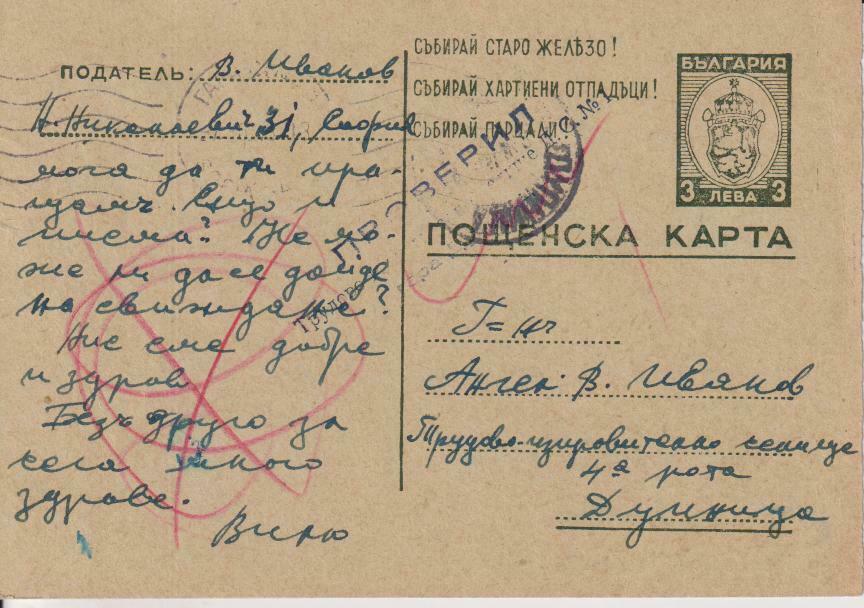 ПОДАТЕЛЬ: В. Иванов
Н. Николаевич 31, София
мога да ти пра-
щамъ също и
писма? Не мо-
же ли да се дойде
на свиждане?
Ние сме добре
и здрави
Безъ друго за
сега много
здраве.
Вило
СЪБИРАЙ СТАРО ЖЕЛѢЗО!
СЪБИРАЙ ХАРТИЕНИ ОТПАДЪЦИ!
СЪБИРАЙ ПАРЦАЛИ!
ПРОВЕРИЛ
Трудово
БЪЛГАРИЯ
3 ЛЕВА 3
ПОЩЕНСКА КАРТА
Г-нъ
Ангел В. Иванов
Трудово-изправително селище
4а рота
Дупница